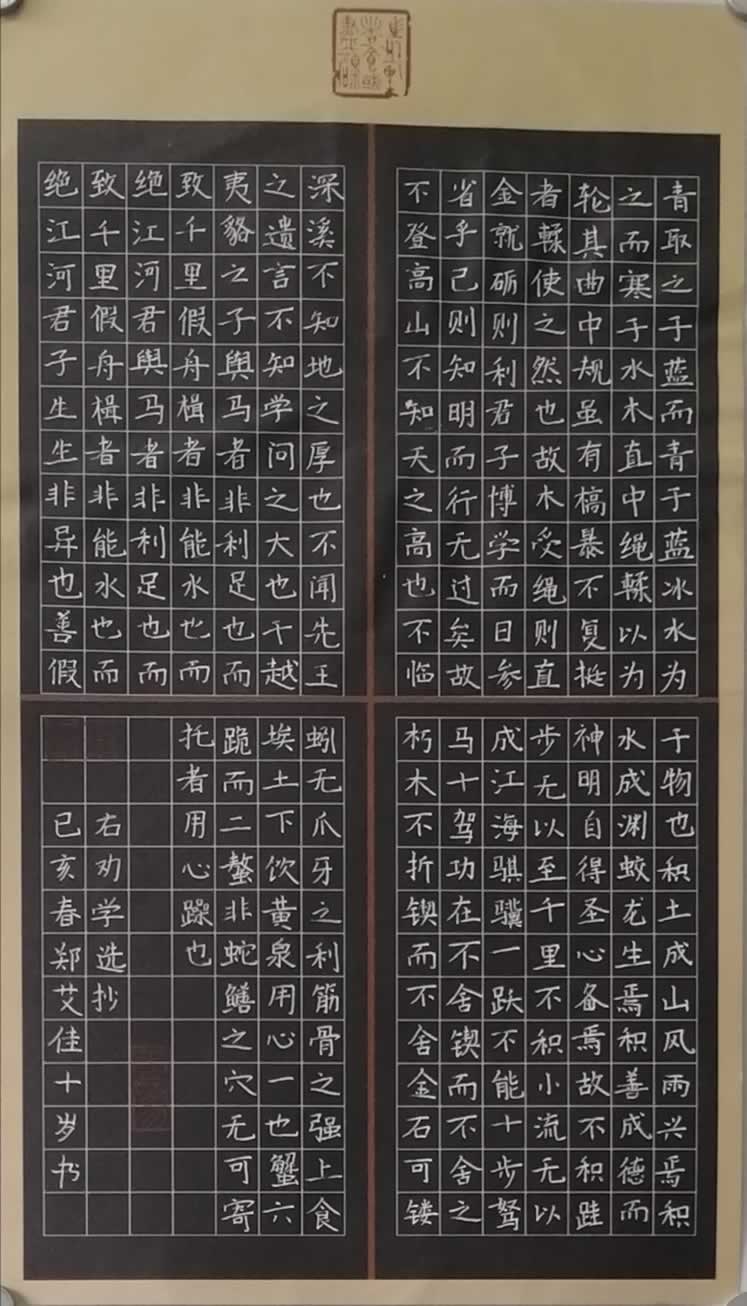 青取之于蓝而青于蓝冰水为
之而寒于水木直中绳輮以为
轮其曲中规虽有槁暴不复挺
者輮使之然也故木受绳则直
金就砺则利君子博学而日参
省乎己则知明而行无过矣故
不登高山不知天之高也不临
深溪不知地之厚也不闻先王
之遗言不知学问之大也干越
夷貉之子舆马者非利足也而
致千里假舟楫者非能水也而
绝江河君舆马者非利足也而
致千里假舟楫者非能水也而
绝江河君子生生非异也善假
于物也积土成山风雨兴焉积
水成渊蛟龙生焉积善成德而
神明自得圣心备焉故不积跬
步无以至千里不积小流无以
成江海骐骥一跃不能十步驽
马十驾功在不舍锲而不舍之
朽木不折锲而不舍金石可镂
蚓无爪牙之利筋骨之强上食
埃土下饮黄泉用心一也蟹六
跪而二螯非蛇鳝之穴无可寄
托者用心躁也
右劝学选抄
已亥春郑艾佳十岁书